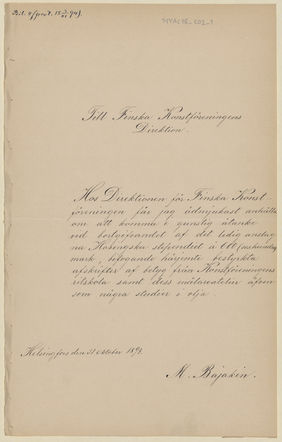 Till Finska Konstföreningens
Direktion.
Hos Direktionen för Finska Konst
föreningen får jag ödmjukast anhålla
om att komma i gunstig åtanke
vid bortgifvandet af det ledig anslag
na Hovingska stipendiet à 600
mark, bifogande härjemte bestyrkta
afskrifter af betyg från Konstföreningens
ritskola samt dess målareatelier äfven
som några studier i olja.
Helsingfors den 31 oktober 1894.
M. Rajakin.